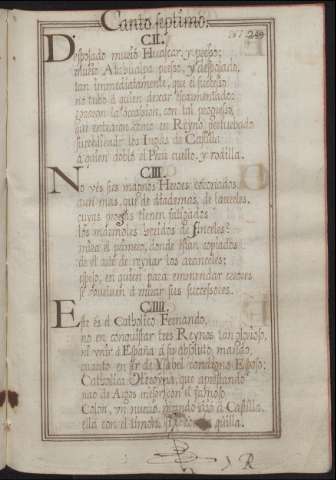 Canto septimo.
CII.
Despojado murió Huascar, y preso;
murió Atabualpa preso, y despojado,
tan immediatamente, que el successo
no tubo à quien dexar escarmentado:
la ocassion, con tal progresso,
que entraron como en Reyno perturbado
succediendo los Ingas de Castilla
à quien dobló el Perù cuello, y rodilla.
CIII.
No vés sus magnos Heroes coronados
aun mas, que de diademas, de laureles,
cuyas proezas tienen fatigados
los marmoles heridos de sinceles?
mira el primero, donde estan copiados
de el arte de reynar los aranceles;
espejo, en quien para emmendar errores
se vuelven à mirar sus successores.
CIIII.
Este és el Catholico Fernando,
no en conquistar tres Reynos tan glorioso,
ni venir à España à su absoluto mando,
cuanto en ser de Ysabel condigno Esposo;
Catholica Heroyna, que aprestando
nao de Argos mejor con el famoso
Colon, un nuevo mundo dió à Castilla
ella con el timon, quilla.